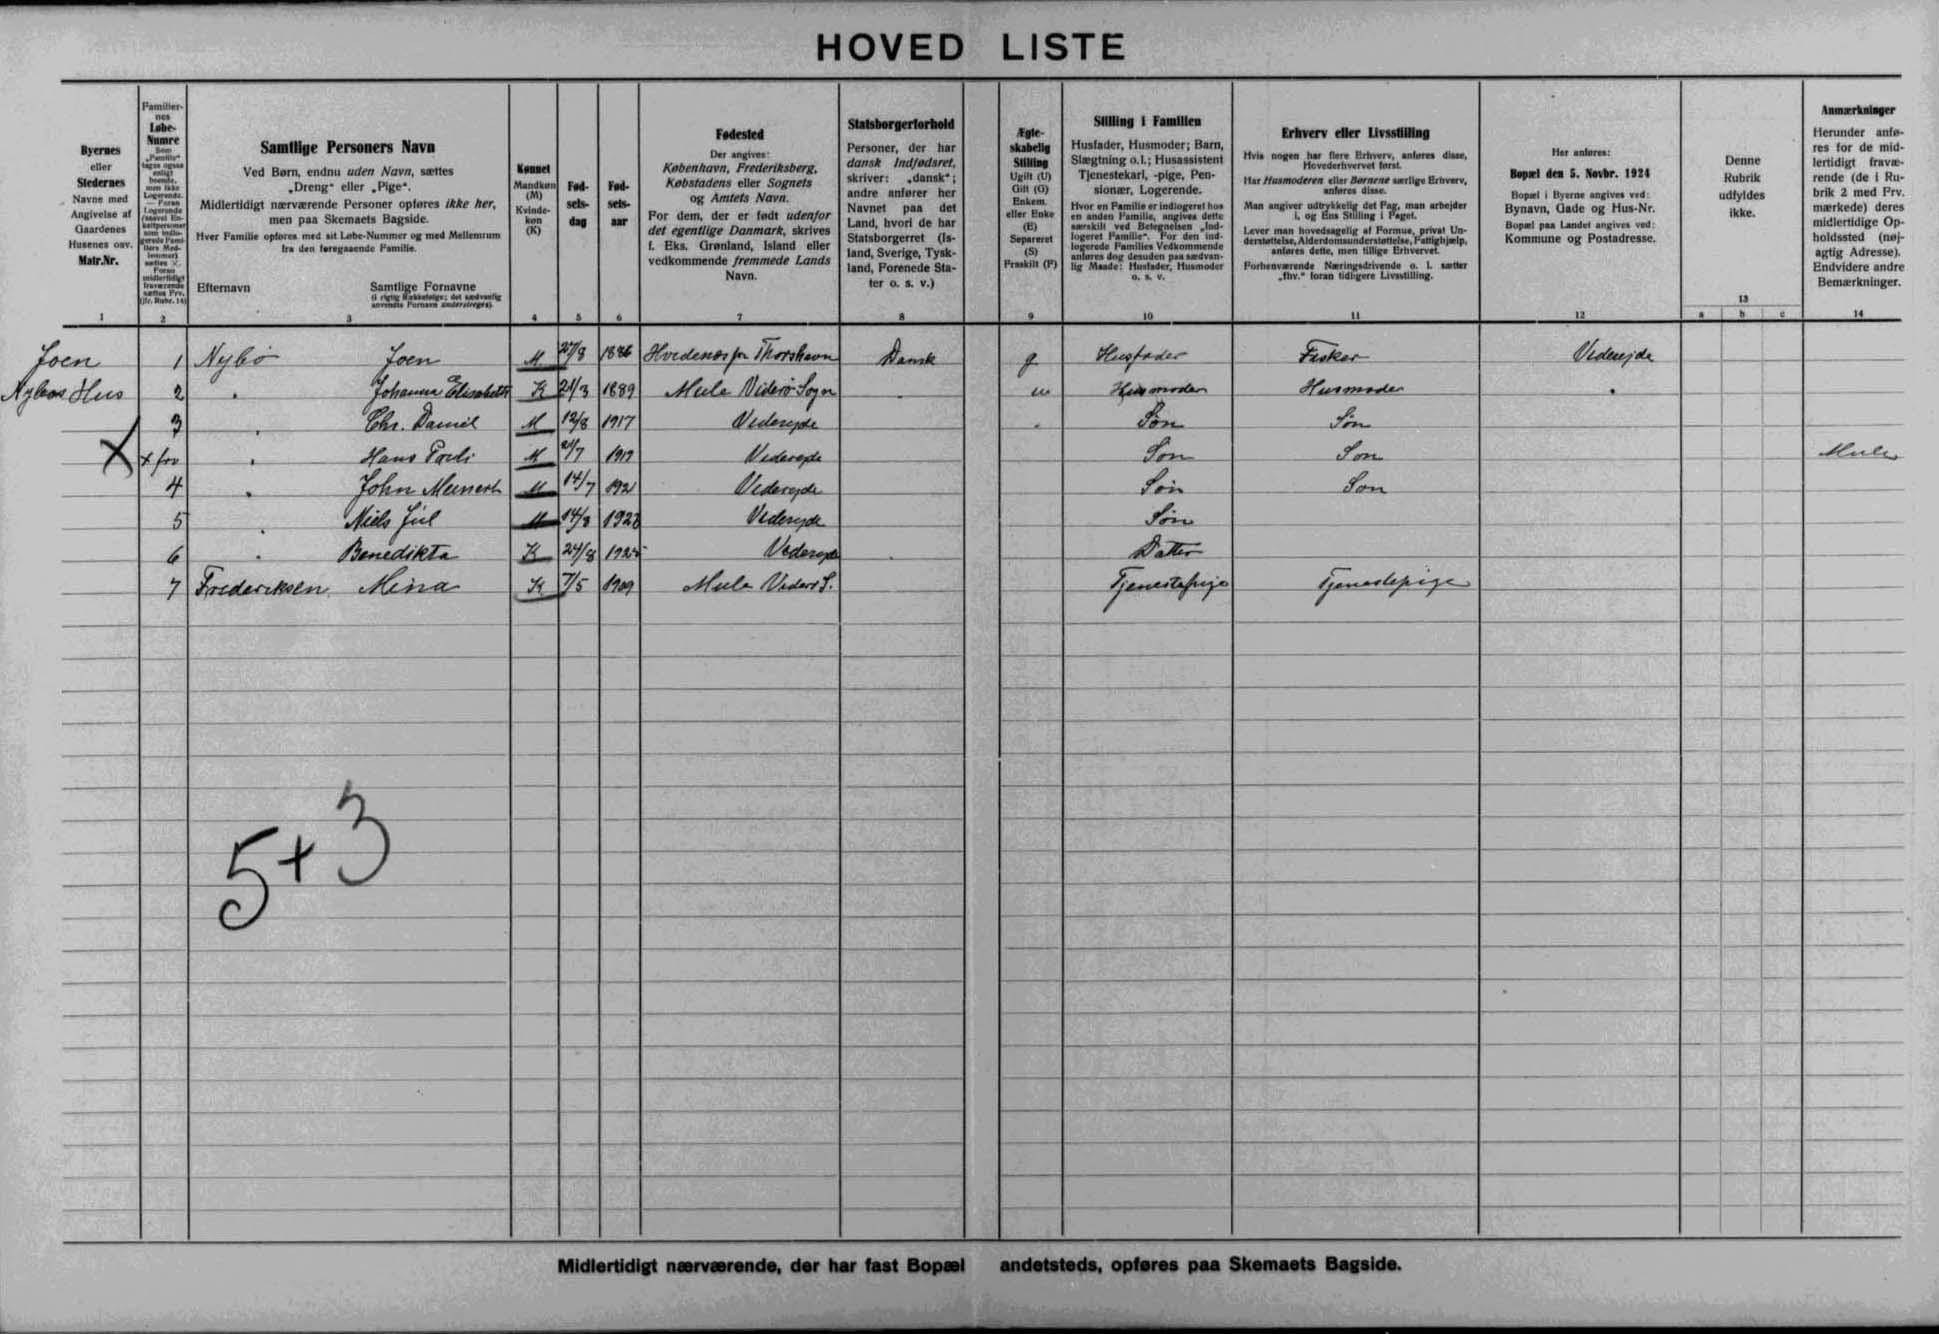 HOVED LISTE
Byernes
eller
Stedernes
Navne med
Angivelse af
Gaardenes
Husenes osv.
Matr.Nr.
1
Familier-
nes
Løbe-
Numre
Som
„Familie“
tages ogsaa
enligt
boende,
som ikke
Logerende.
— Foran
Logerende
(saavel En-
keltpersoner
som indlo-
gerede Fami-
liers Med-
lemmer)
sættes ×.
Foran
midlertidigt
fraværende
sættes Frv.
(jfr. Rubr. 14)
2
Samtlige Personers Navn
Ved Børn, endnu uden Navn, sættes
„Dreng“ eller „Pige“.
Midlertidigt nærværende Personer opføres ikke her,
men paa Skemaets Bagside.
Hver Familie opføres med sit Løbe-Nummer og med Mellemrum
fra den foregaaende Familie.
Efternavn
Samtlige Fornavne
(i rigtig Rækkefølge; det sædvanlig
anvendte Fornavn understreges).
3
Kønnet
Mandkøn
(M)
Kvinde-
køn
(K)
4
Fød-
sels-
dag
5
Fød-
sels-
aar
6
Fødested
Der angives:
København, Frederiksberg,
Købstadens eller Sognets
og Amtets Navn.
For dem, der er født udenfor
det egentlige Danmark, skrives
f. Eks. Grønland, Island eller
vedkommende fremmede Lands
Navn.
7
Statsborgerforhold
Personer, der har
dansk Indfødsret,
skriver: „dansk“;
andre anfører her
Navnet paa det
Land, hvori de har
Statsborgerret (Is-
land, Sverige, Tysk-
land, Forenede Sta-
ter o. s. v.)
8
Ægte-
skabelig
Stilling
Ugift (U)
Gift (G)
Enkem.
eller Enke
(E)
Separeret
(S)
Fraskilt (F)
9
Stilling i Familien
Husfader, Husmoder; Barn,
Slægtning o.l.; Husassistent
Tjenestekarl, -pige, Pen-
sionær, Logerende.
Hvor en Familie er indlogeret hos
en anden Familie, angives dette
særskilt ved Betegnelsen „Ind-
logeret Familie“. For den ind-
logerede Families Vedkommende
anføres dog desuden paa sædvan-
lig Maade: Husfader, Husmoder
o. s. v.
10
Erhverv eller Livsstilling
Hvis nogen har flere Erhverv, anføres disse,
Hovederhvervet først.
Har Husmoderen eller Børnene særlige Erhverv,
anføres disse.
Man angiver udtrykkelig det Fag, man arbejder
i, og Ens Stilling i Faget.
Lever man hovedsagelig af Formue, privat Un-
derstøttelse, Alderdomsunderstøttelse, Fattighjælp,
anføres dette, men tillige Erhvervet.
Forhenværende Næringsdrivende o. l. sætter
„fhv.“ foran tidligere Livsstilling.
11
Her anføres:
Bopæl den 5. Novbr. 1924
Bopæl i Byerne angives ved:
Bynavn, Gade og Hus-Nr.
Bopæl paa Landet angives ved:
Kommune og Postadresse.
12
Denne
Rubrik
udfyldes
ikke.
13
a b c
Anmærkninger
Herunder anfø-
res for de mid-
lertidigt fravæ-
rende (de i Ru-
brik 2 med Frv.
mærkede) deres
midlertidige Op-
holdssted (nøj-
agtig Adresse).
Endvidere andre
Bemærkninger.
14
Joen 1 Nybø Joen M 27/8 1886 Hvidenæs pr Thorshavn Dansk g Husfader Fisker Viderejde
Nybøs Hus 2 " Johanna Elisabeth K 21/3 1889 Mule Viderø Sogn " Husmoder Husmoder "
3 " Chr. Daniel M 12/8 1917 Viderejde " Søn Søn
× frv " Hans Pauli M 21/7 1919 Viderejde Søn Søn Mule
4 " John Meinert M 14/7 1921 Viderejde Søn Søn
5 " Niels Jul M 14/8 1923 Viderejde Søn
6 " Benedikta K 24/8 1925 Viderejde Datter
7 Frederiksen Mina K 7/5 1909 Mule Viderø S. Tjenestepige Tjenestepige
5+3
Midlertidigt nærværende, der har fast Bopæl andetsteds, opføres paa Skemaets Bagside.